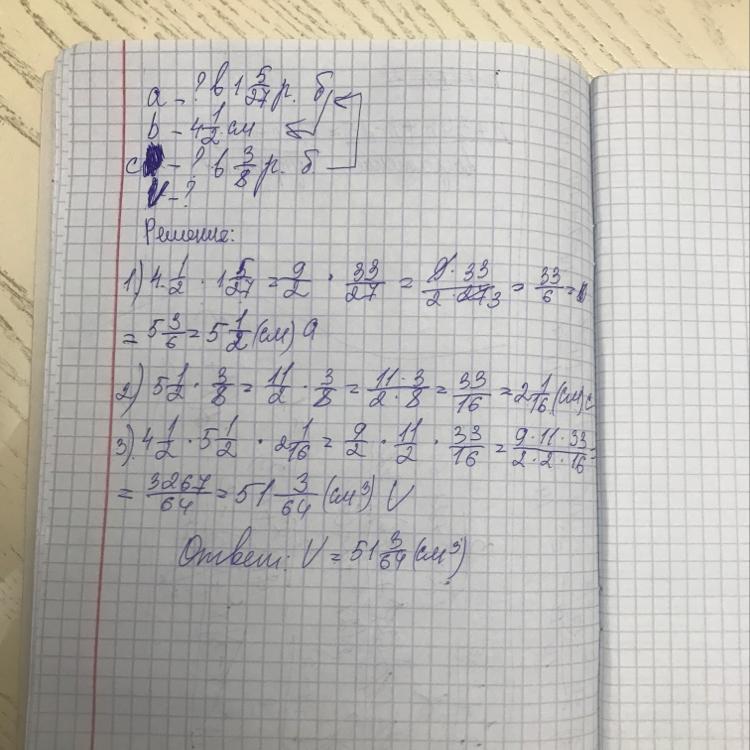 a - ? в 1 5/27 р. б
b - 4 1/2 см
c - ? в 3/8 р. б
V - ?
Решение:
1) 4 1/2 · 1 5/27 = 9/2 · 33/27 = 9 · 33/2 · 27 3 = 33/6 =
= 5 3/6 = 5 1/2 (см) a
2) 5 1/2 · 3/8 = 11/2 · 3/8 = 11 · 3/2 · 8 = 33/16 = 2 1/16 (см) c
3) 4 1/2 · 5 1/2 · 2 1/16 = 9/2 · 11/2 · 33/16 = 9 · 11 · 33/2 · 2 · 16 =
= 3267/64 = 51 3/64 (см³) V
Ответ: V = 51 3/64 (см³)